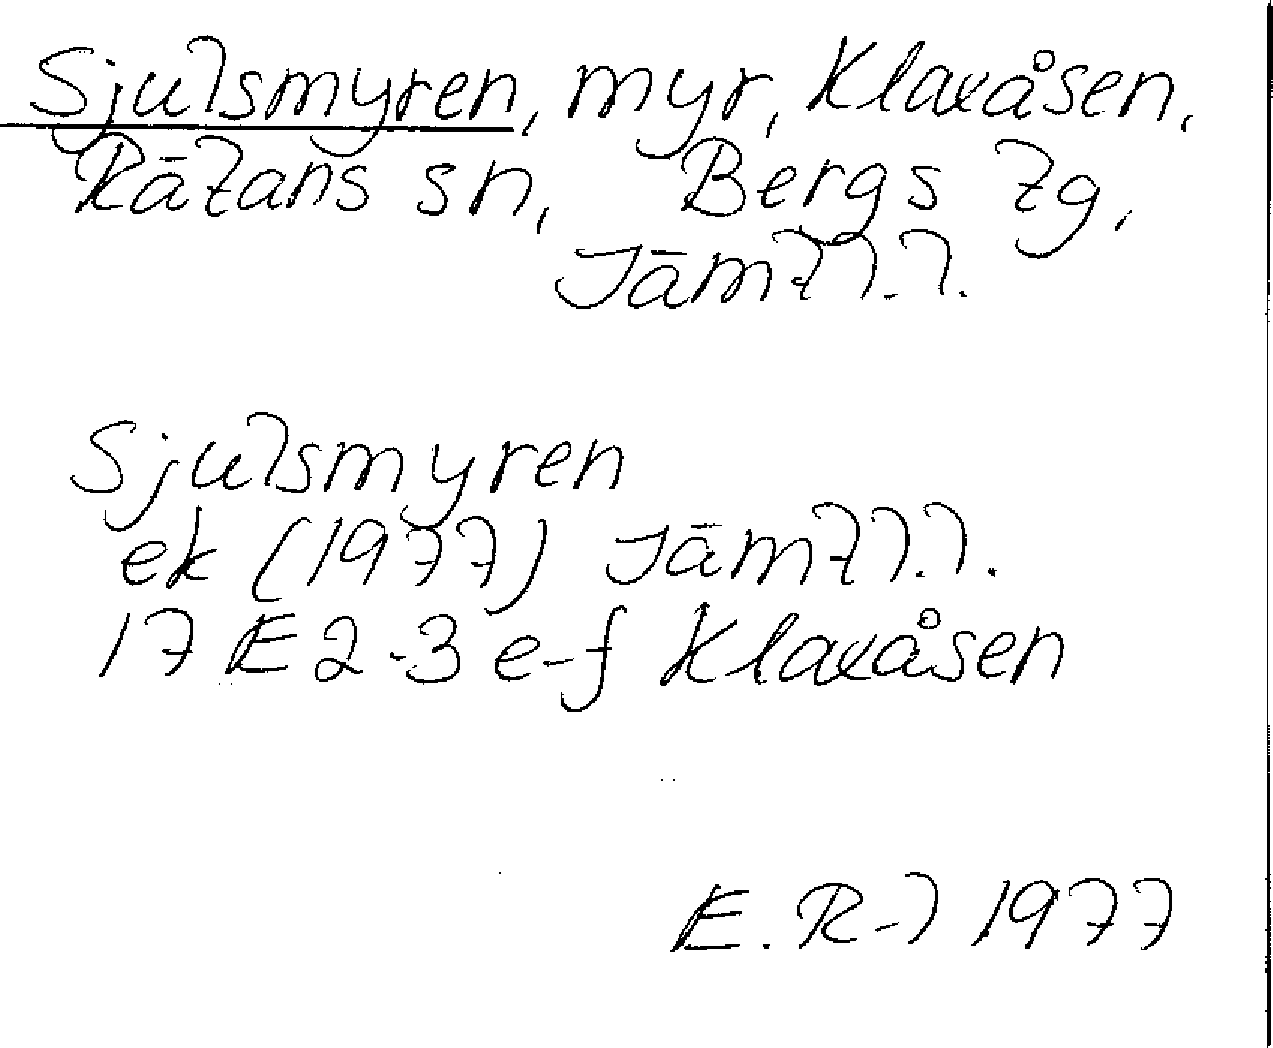 Sjulsmyren, myr, Klaxåsen,
Rätans sn, Bergs tg,
Jämtl.l.
Sjulsmyren
ek (1977) Jämtl.l.
17 E 2-3 e-f Klaxåsen
E. R-l 1977